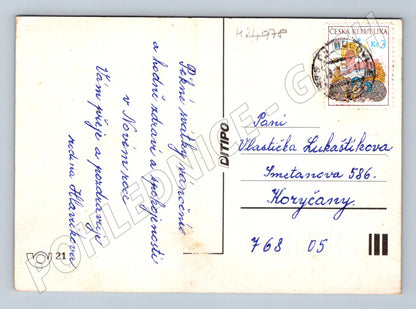 M24978
ČESKÁ REPUBLIKA
Kč 3
Pěkné svátky vánoční
a hodně zdraví a spokojenosti
v Novém roce
Vám přeje a pozdravuje
rodina Hlavičkova
ORBIS
Paní
Vlastička Lukaštíková
Smetanova 586.
Koryčany.
768 05
21
POHLEDNICE-G